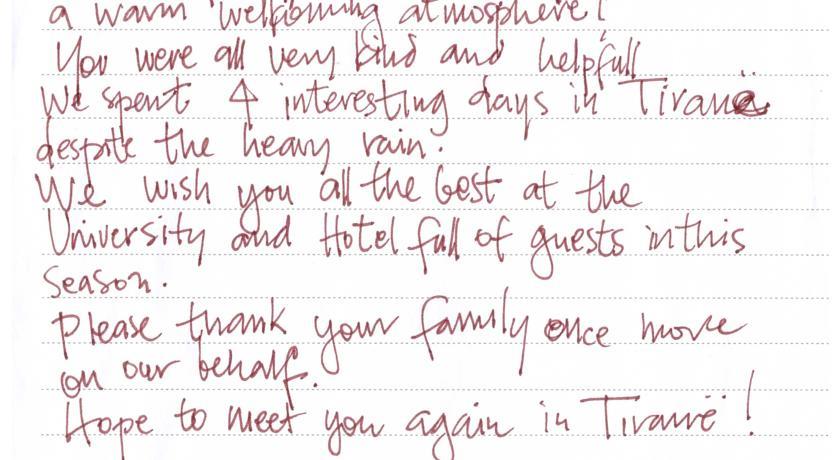 a warm wellcoming atmosphere!
You were all very kind and helpfull
We spent 4 interesting days in Tiranë
despite the heavy rain.
We wish you all the best at the
University and Hotel full of guests in this
season.
Please thank your family once more
on our behalf.
Hope to meet you again in Tiranë!